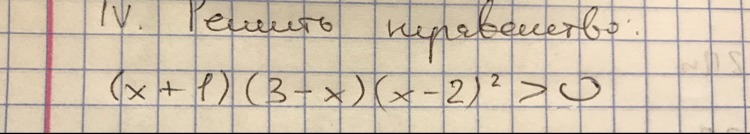 IV. Решить неравенство:
(x + 1)(3 - x)(x - 2)² > 0